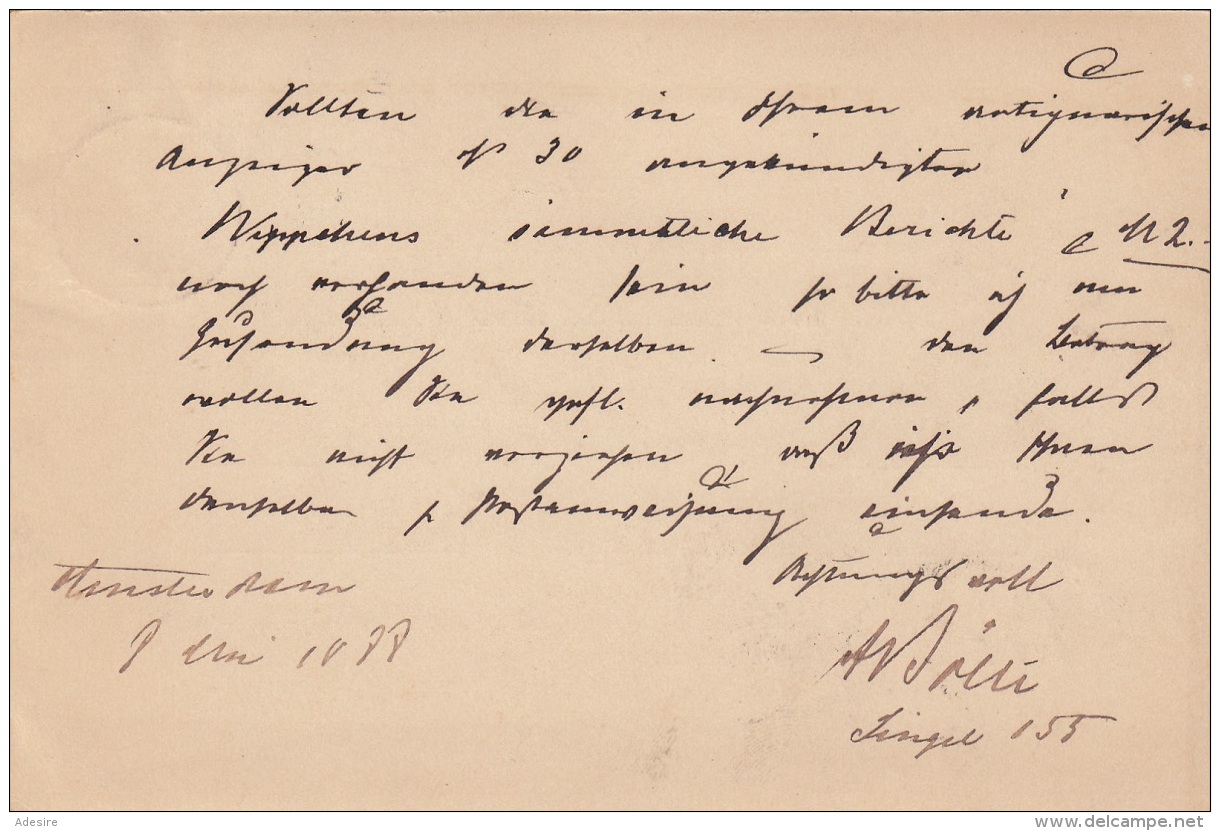 Sollten die in Ihrem antiquarischen
Anzeiger № 30 angekündigten
Wippchens sämmtliche Berichte à M 2.-
noch vorhanden sein so bitte ich um
Zusendung derselben. – den Betrag
wollen Sie gefl. nachnehmen, falls
Sie nicht vorziehen daß ich Ihnen
denselben p Postanweisung einsende.
Achtungsvoll
Amsterdam
8 Mai 1888
A Bölli
Singel 155
Adesire
delcampe.net